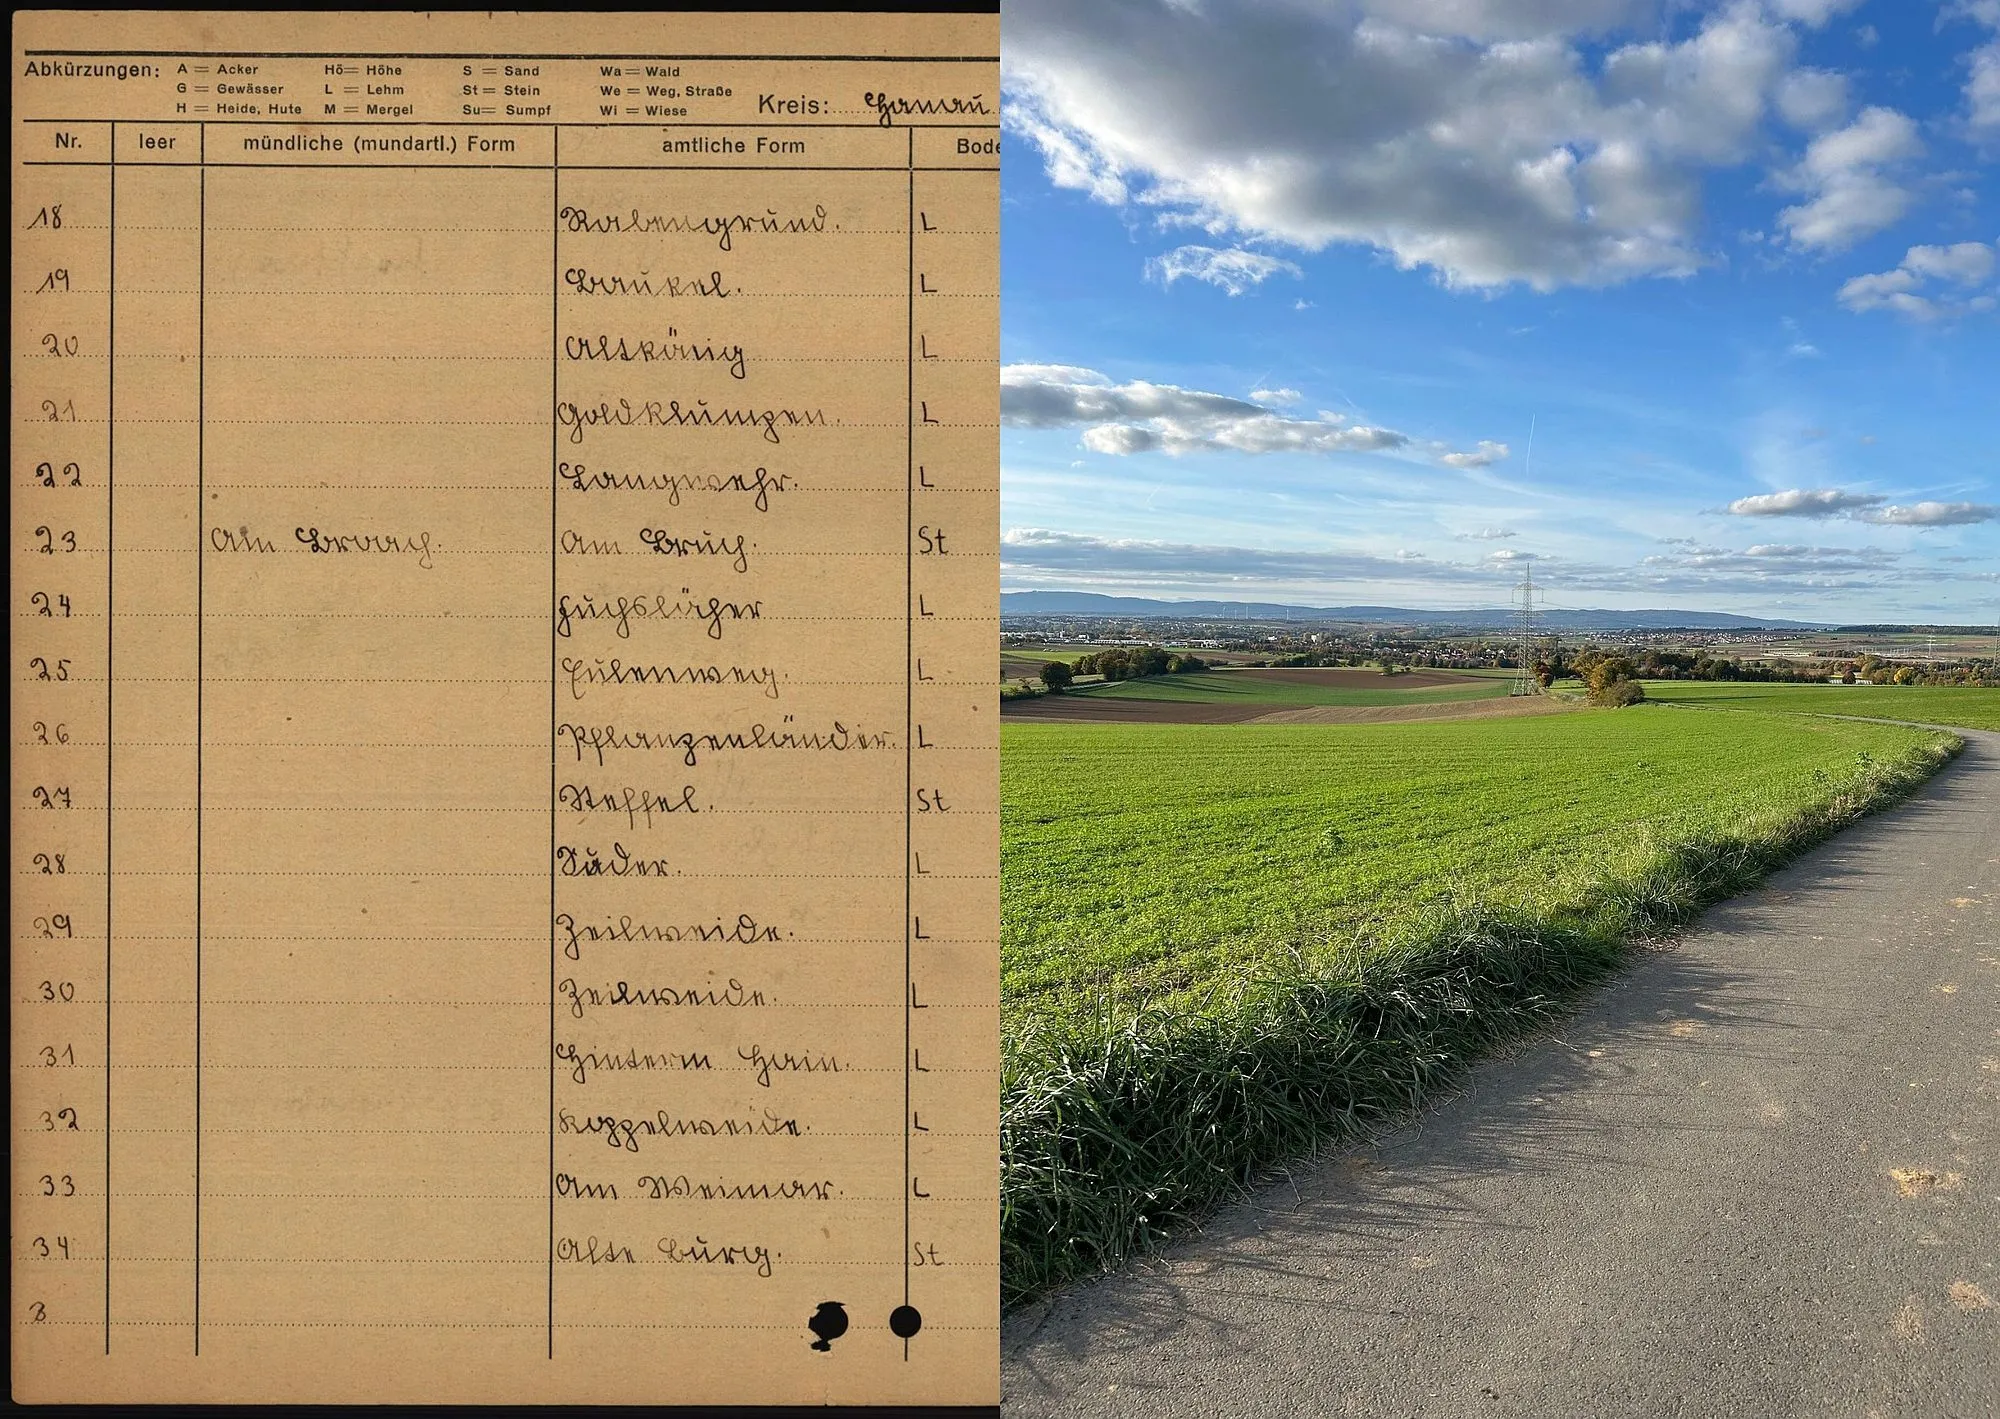 Abkürzungen: A = Acker Hö = Höhe S = Sand Wa = Wald
G = Gewässer L = Lehm St = Stein We = Weg, Straße
H = Heide, Hute M = Mergel Su = Sumpf Wi = Wiese Kreis: Hanau
Nr. leer mündliche (mundartl.) Form amtliche Form Bode
18 Rabengrund. L
19 Baukel. L
20 Altkönig L
21 Goldklumpen. L
22 Langwehr. L
23 Am Braach. Am Bruch. St
24 Fuchslöcher L
25 Eulenweg. L
26 Pflanzenländer. L
27 Steffel. St
28 L
29 Zeilweide. L
30 Zeilweide. L
31 Hinterm Hain. L
32 Koppelweide. L
33 Am Weimar. L
34 Alte Burg. St
3